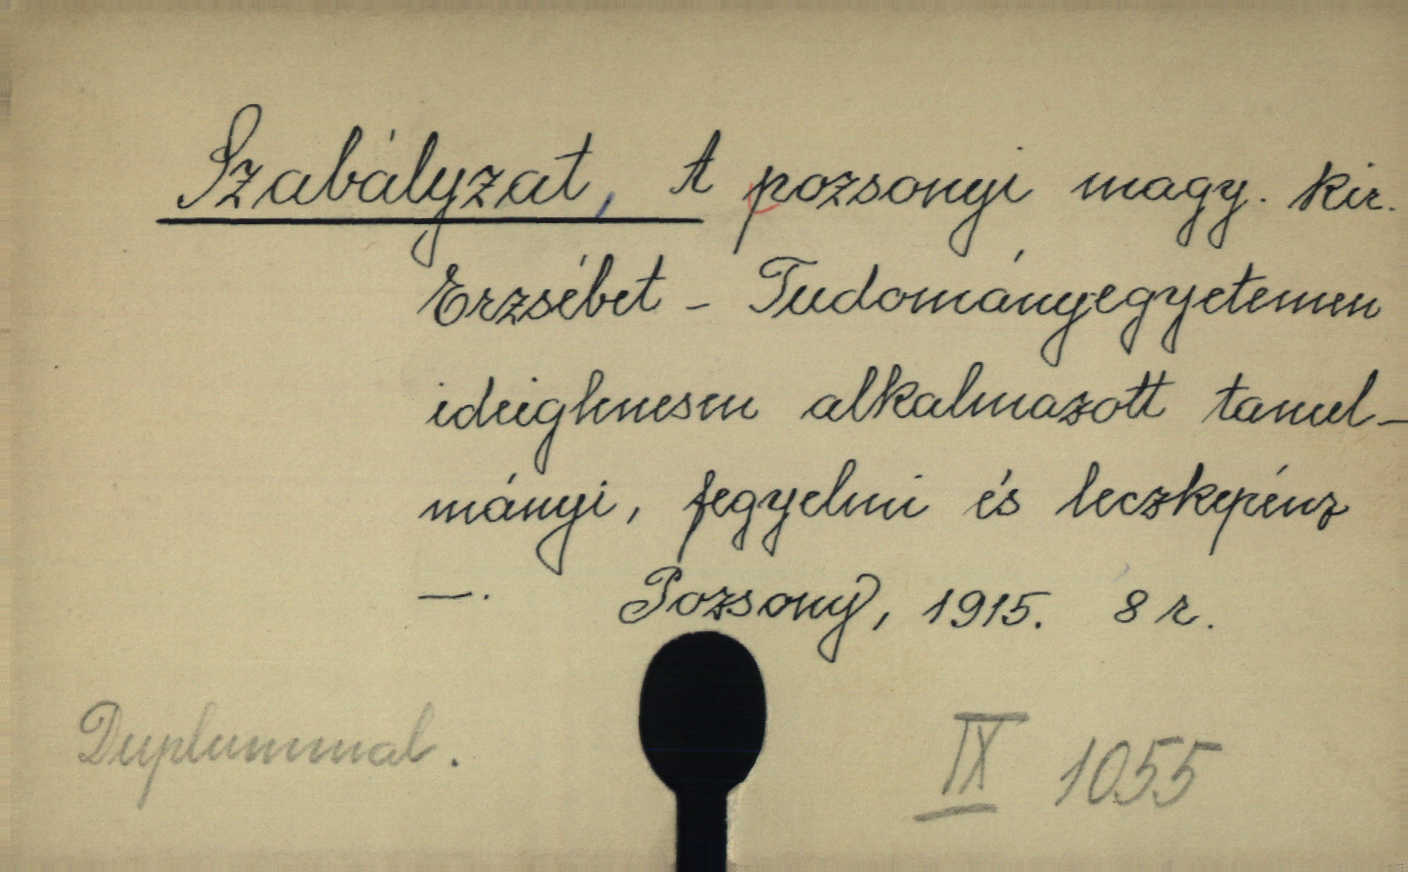 Szabályzat, A pozsonyi magy. kir.
Erzsébet - Tudományegyetemen
ideiglenesen alkalmazott tanul-
mányi, fegyelmi és leczkepénz
—. Pozsony, 1915. 8 r.
Duplummal.
IX 1055